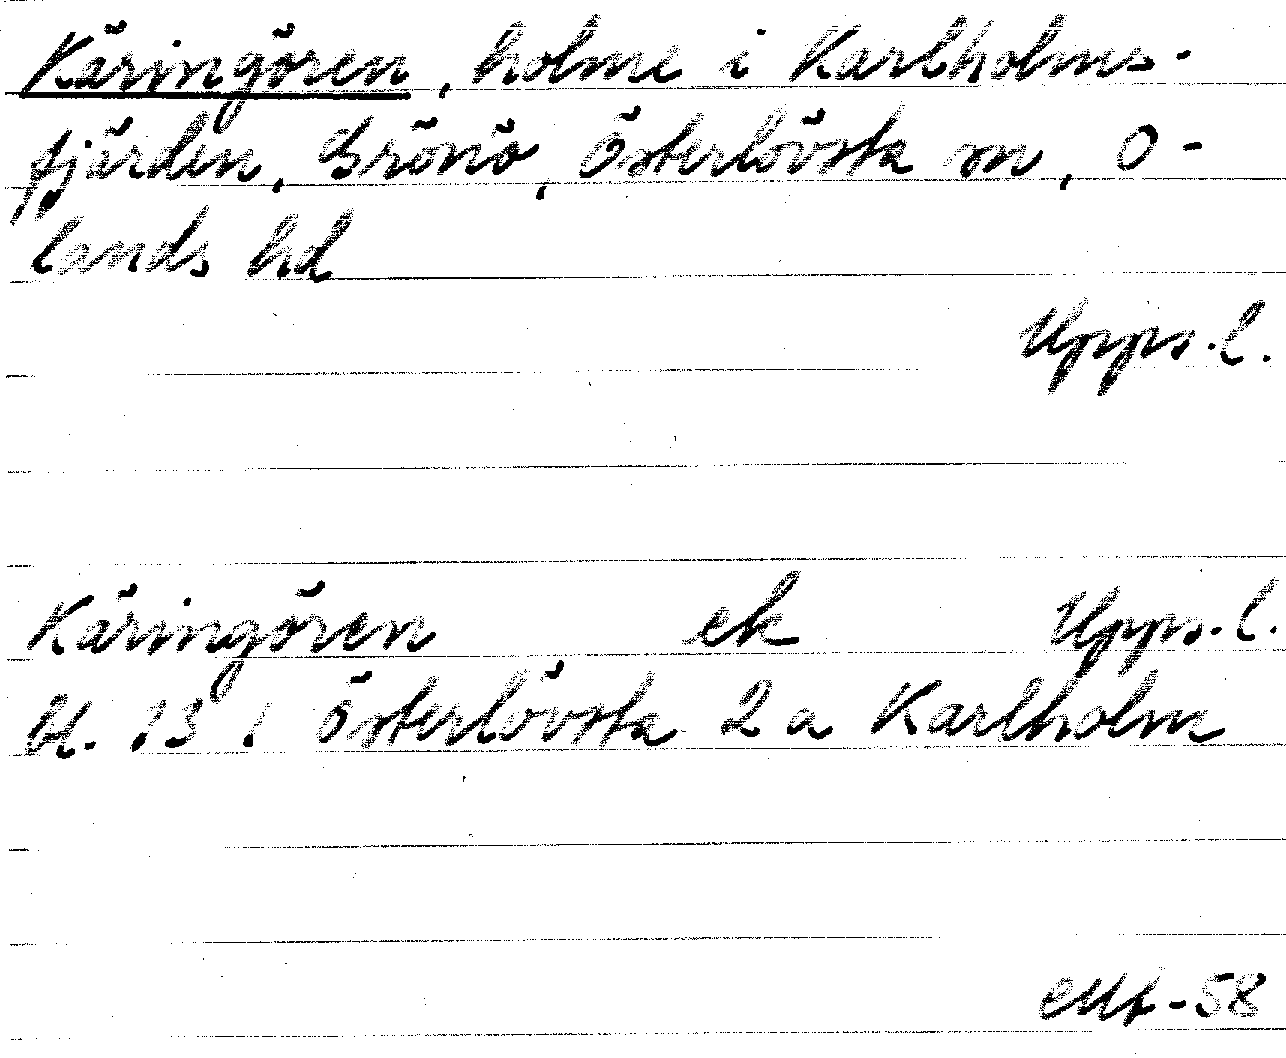 Käringören, holme i Karlholms-
fjärden, Grönö, Österlövsta sn, O-
lands hd
Upps. l.
Käringören ek Upps. l.
bl. 13 I Österlövsta 2 a Karlholm
-58